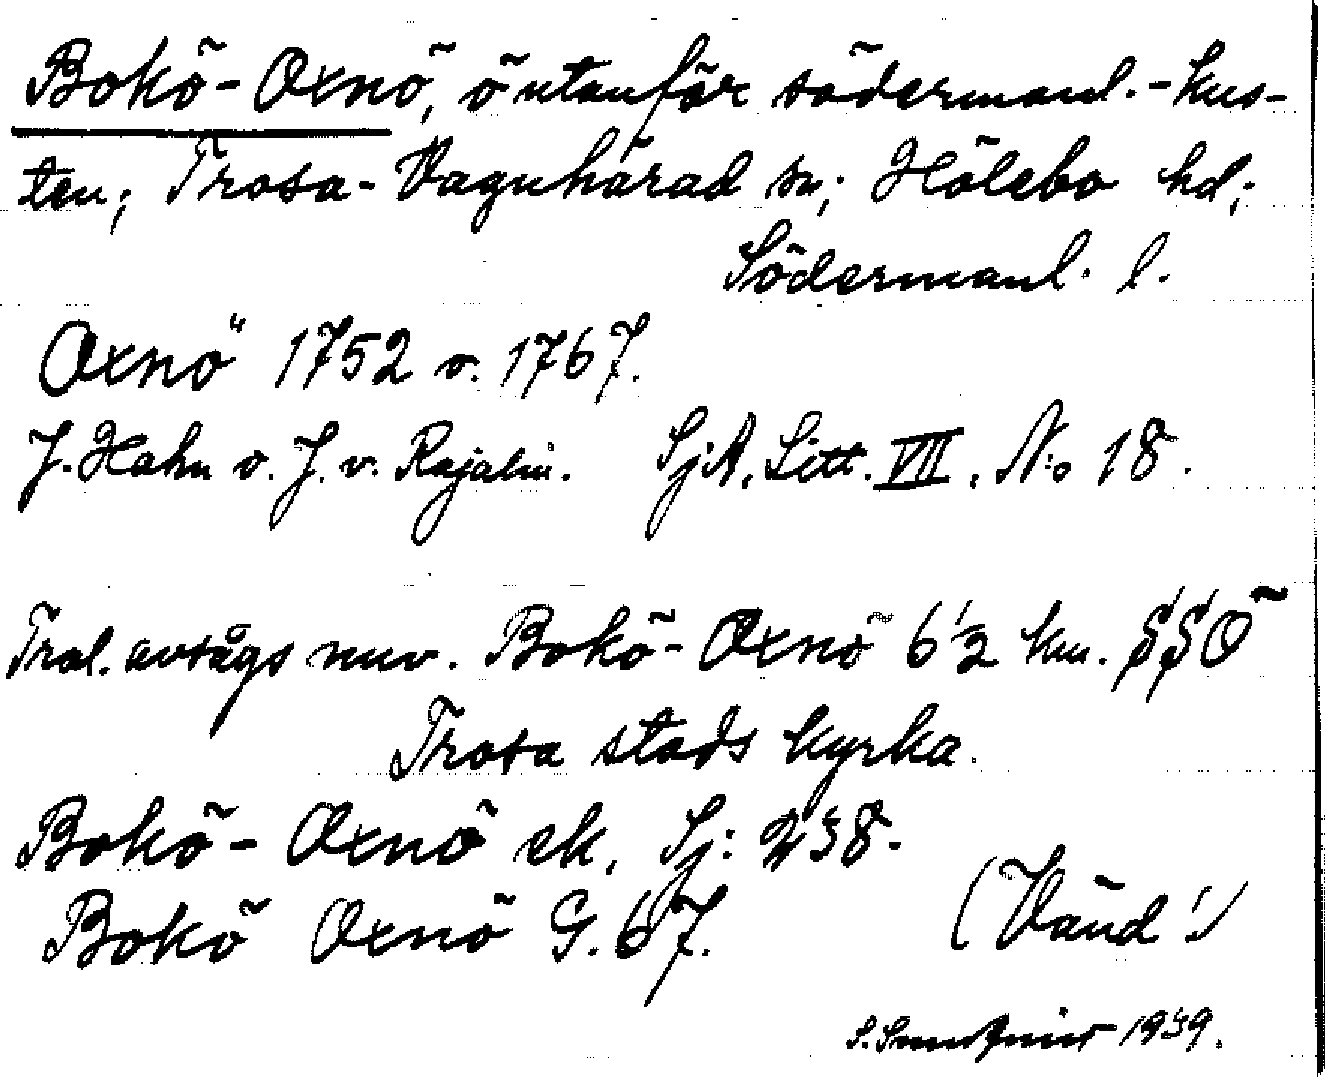 Bokö-Oxnö, ö utanför södermanl.-kus-
ten; Trosa-Vagnhärad sn; Hölebo hd;
Södermanl. l.
Oxnö 1752 o. 1767.
J. Hahn o. J. v. Rajalin. SjA. Litt. VII. No 18.
Trol. avsågs nuv. Bokö-Oxnö 6½ km. SSO
Trosa stads kyrka.
Bokö-Oxnö ek. Sj: 238.
Bokö Oxnö G. 67.
(Vänd!)
1939.